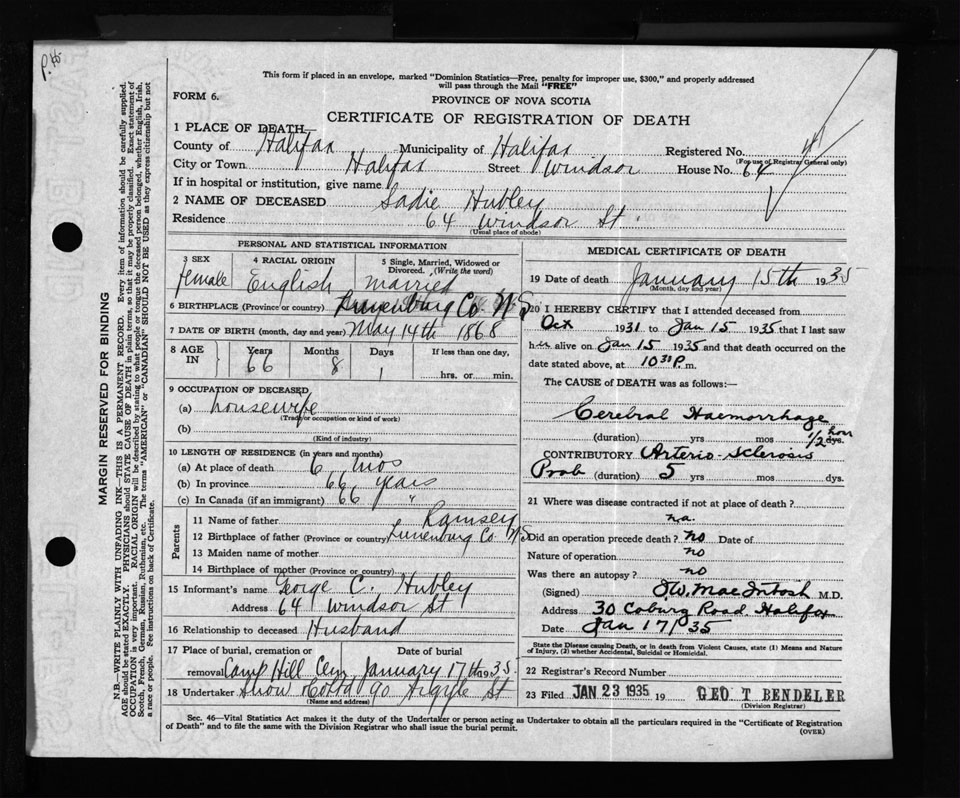 P.H.
This form if placed in an envelope, marked "Dominion Statistics—Free, penalty for improper use, $300," and properly addressed
will pass through the Mail "FREE"
FORM 6.
PROVINCE OF NOVA SCOTIA
CERTIFICATE OF REGISTRATION OF DEATH
1 PLACE OF DEATH
County of Halifax Municipality of Halifax Registered No.
(For use of Registrar General only)
City or Town Halifax Street Windsor House No. 64
If in hospital or institution, give name
2 NAME OF DECEASED Sadie Hubley
Residence 64 Windsor St.
(Usual place of abode)
MARGIN RESERVED FOR BINDING
N.B.—WRITE PLAINLY WITH UNFADING INK—THIS IS A PERMANENT RECORD. Every item of information should be carefully supplied.
AGE should be stated EXACTLY. PHYSICIANS should STATE CAUSE OF DEATH in plain terms, so that it may be properly classified. Exact statement of
OCCUPATION is very important. RACIAL ORIGIN will be described by stating to what people or tongue the deceased person belonged, whether English, Irish,
Scotch, French, German, Russian, Ruthenian, etc. The terms "AMERICAN" or "CANADIAN" SHOULD NOT BE USED as they express citizenship but not
a race or people. See instructions on back of Certificate.
PERSONAL AND STATISTICAL INFORMATION
3 SEX
female
4 RACIAL ORIGIN
English
5 Single, Married, Widowed or
Divorced. (Write the word)
married
6 BIRTHPLACE (Province or country) Lunenburg Co. N.S
7 DATE OF BIRTH (month, day and year) May 14th 1868
8 AGE IN
Years Months Days If less than one day,
66 8 1 hrs. or min.
9 OCCUPATION OF DECEASED
(a) housewife
(Trade or occupation or kind of work)
(b)
(Kind of industry)
10 LENGTH OF RESIDENCE (in years and months)
(a) At place of death 6 mos
(b) In province 66 years
(c) In Canada (if an immigrant) 66 "
Parents
11 Name of father Ramsey
12 Birthplace of father (Province or country) Lunenburg Co. N.S
13 Maiden name of mother
14 Birthplace of mother (Province or country)
15 Informant's name George C. Hubley
Address 64 Windsor St
16 Relationship to deceased Husband
17 Place of burial, cremation or Date of burial
removal Camp Hill Cem. January 17th 1935
18 Undertaker Snow 90 Argyle St
(Name and address)
MEDICAL CERTIFICATE OF DEATH
19 Date of death January 15th 1935
(Month, day and year)
20 I HEREBY CERTIFY that I attended deceased from
Oct 1931 to Jan 15 1935 that I last saw
her alive on Jan 15 1935 and that death occurred on the
date stated above, at 10 30 P. m.
The CAUSE of DEATH was as follows:—
Cerebral Haemorrhage
(duration) yrs mos 1/2 hour dys.
CONTRIBUTORY Arterio-Sclerosis
Prob (duration) 5 yrs mos dys.
21 Where was disease contracted if not at place of death?
na.
Did an operation precede death? no Date of
Nature of operation no
Was there an autopsy? no
(Signed) J.W. MacIntosh M.D.
Address 30 Coburg Road Halifax
Date Jan 17/35
State the Disease causing Death, or in death from Violent Causes, state (1) Means and Nature
of Injury, (2) whether Accidental, Suicidal or Homicidal.
22 Registrar's Record Number
23 Filed JAN 23 1935 19 GEO T BENDELER
(Division Registrar)
Sec. 46—Vital Statistics Act makes it the duty of the Undertaker or person acting as Undertaker to obtain all the particulars required in the "Certificate of Registration
of Death" and to file the same with the Division Registrar who shall issue the burial permit.
(OVER)